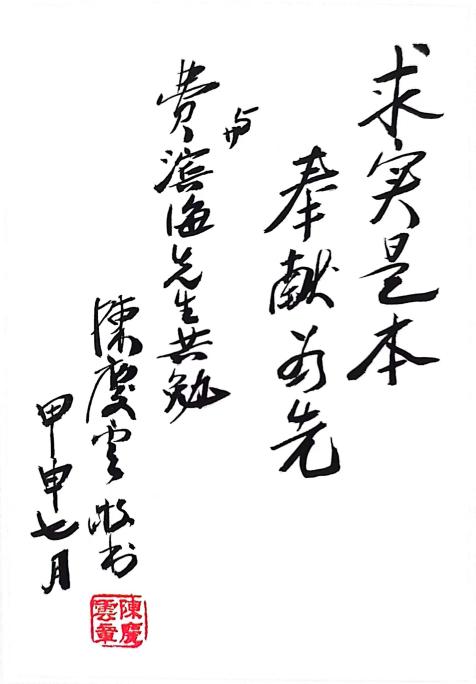 求实是本
奉献为先
与
费滨海先生共勉
陳慶雲敬书
甲申七月
陳慶雲章